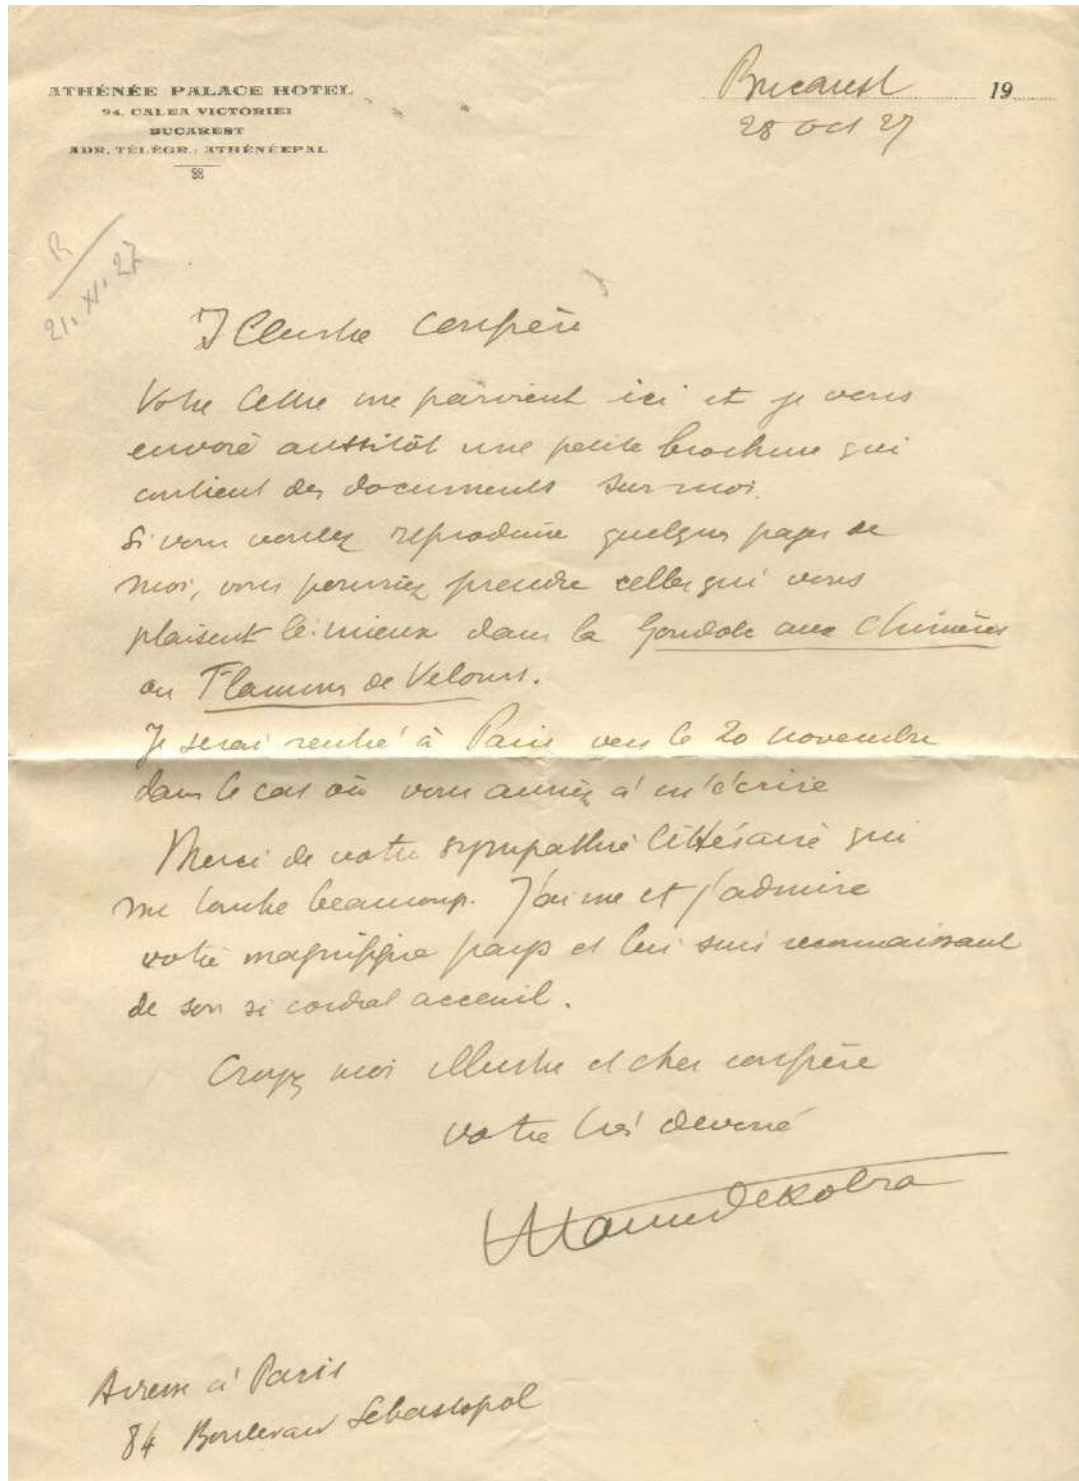 ATHÉNÉE PALACE HOTEL
94, CALEA VICTORIEI
BUCAREST
ADR. TÉLÉGR.: ATHÉNÉEPAL
98
Bucarest 19
28 Oct 27
R
21. XI. 27
Illustre Confrère
Votre lettre me parvient ici et je vous
envoie aussitôt une petite brochure qui
contient des documents sur moi.
Si vous voulez reproduire quelques pages de
moi, vous pourriez prendre celles qui vous
plaisent le mieux dans la Gondole aux Chimères
ou Flammes de Velours.
Je serai rentré à Paris vers le 20 novembre
dans le cas où vous auriez à m'écrire
Merci de votre sympathie littéraire qui
me touche beaucoup. J'aime et j'admire
votre magnifique pays et lui suis reconnaissant
de son si cordial acceuil.
Croyez moi illustre et cher confrère
votre très dévoué
Maurice Dekobra
Adresse à Paris
84 Boulevard Sebastopol